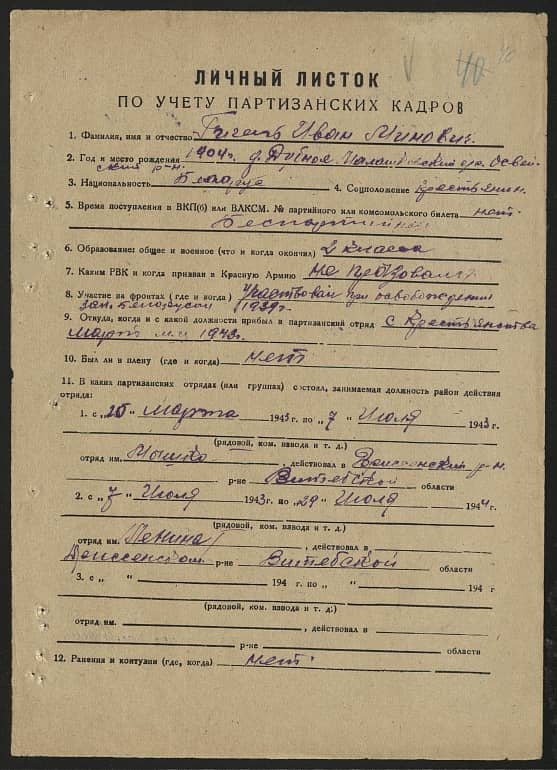 40
ЛИЧНЫЙ ЛИСТОК
ПО УЧЕТУ ПАРТИЗАНСКИХ КАДРОВ
1. Фамилия, имя и отчество Иван Минович
2. Год и место рождения 1904г. д. Дубное Освей-
ский р-н.
3. Национальность Белорус 4. Соцположение Крестьянин.
5. Время поступления в ВКП(б) или ВЛКСМ. № партийного или комсомольского билета нет
Беспартийный
6. Образование: общее и военное (что и когда окончил) 2 класса
7. Каким РВК и когда призван в Красную Армию не призывался
8. Участие на фронтах (где и когда) Участвовал при освобождении
зап. Белорусси 1939г.
9. Откуда, когда и с какой должности прибыл в партизанский отряд с Крестьянства
Март м-ц 1943г.
10. Был ли в плену (где и когда) нет
11. В каких партизанских отрядах (или группах) состоял, занимаемая должность район действия
отряда:
1. с „ 15 " Марта 1943 г по „ 7 " Июля 1943 г.
(рядовой, ком. взвода и т. д.)
отряд им. , действовал в Дриссенский р-н.
р-не Витебской области
2. с „ 7 " Июля 1943г. по „ 29 " Июля 1944 г.
(рядовой, ком. взвода и т. д.)
отряд им. Ленина , действовал в
Дриссенском р-не Витебской области
3. с „ " 194 г. по „ " 194 г
(рядовой, ком. взвода и т. д.)
отряд им. , действовал в
р-не области
12. Ранения и контузии (где, когда) нет